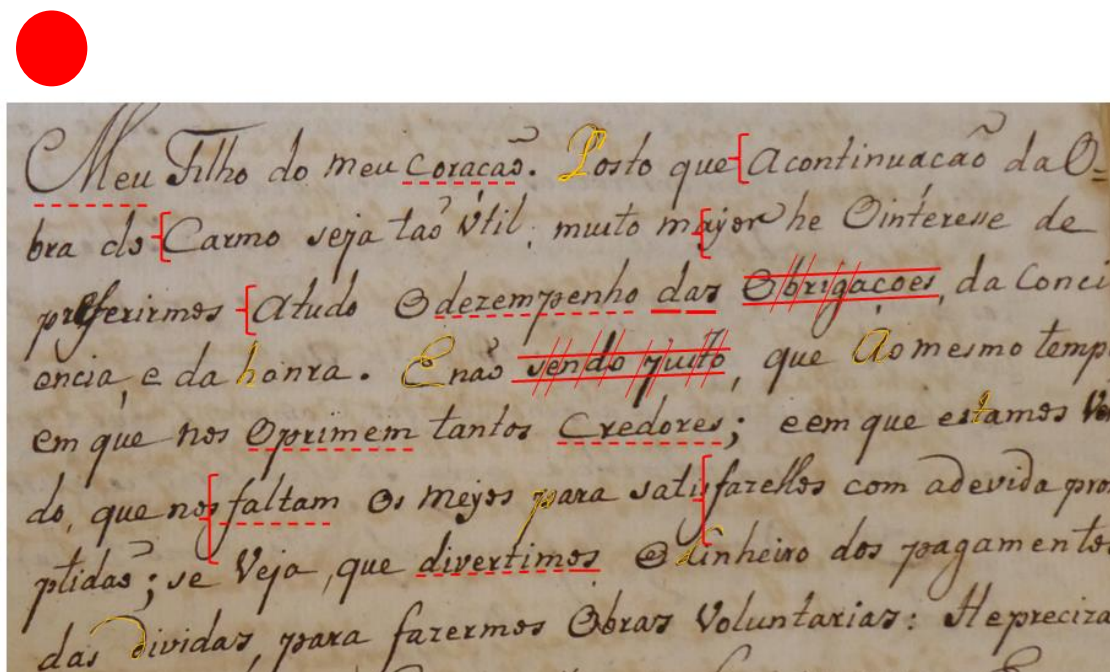 Meu Filho do meu Coracaõ. Posto que Acontinuacaõ da O=
bra do Carmo seja taõ Vtil, muito mayor he Ointeresse de
preferirmos Atudo Odezempenho das Obrigaçoes, da Conci
encia, e da honra. Enaõ sendo justo, que Aomesmo temp
em que nos Oprimem tantos Credores; eem que estamos Ve
do, que nos faltam Os meyos para satisfazellos com adevida pro
ptidaõ; se Veja, que divertimos Odinheiro dos pagamentos
das dividas, para fazermos Obras Voluntarias: Hepreciza